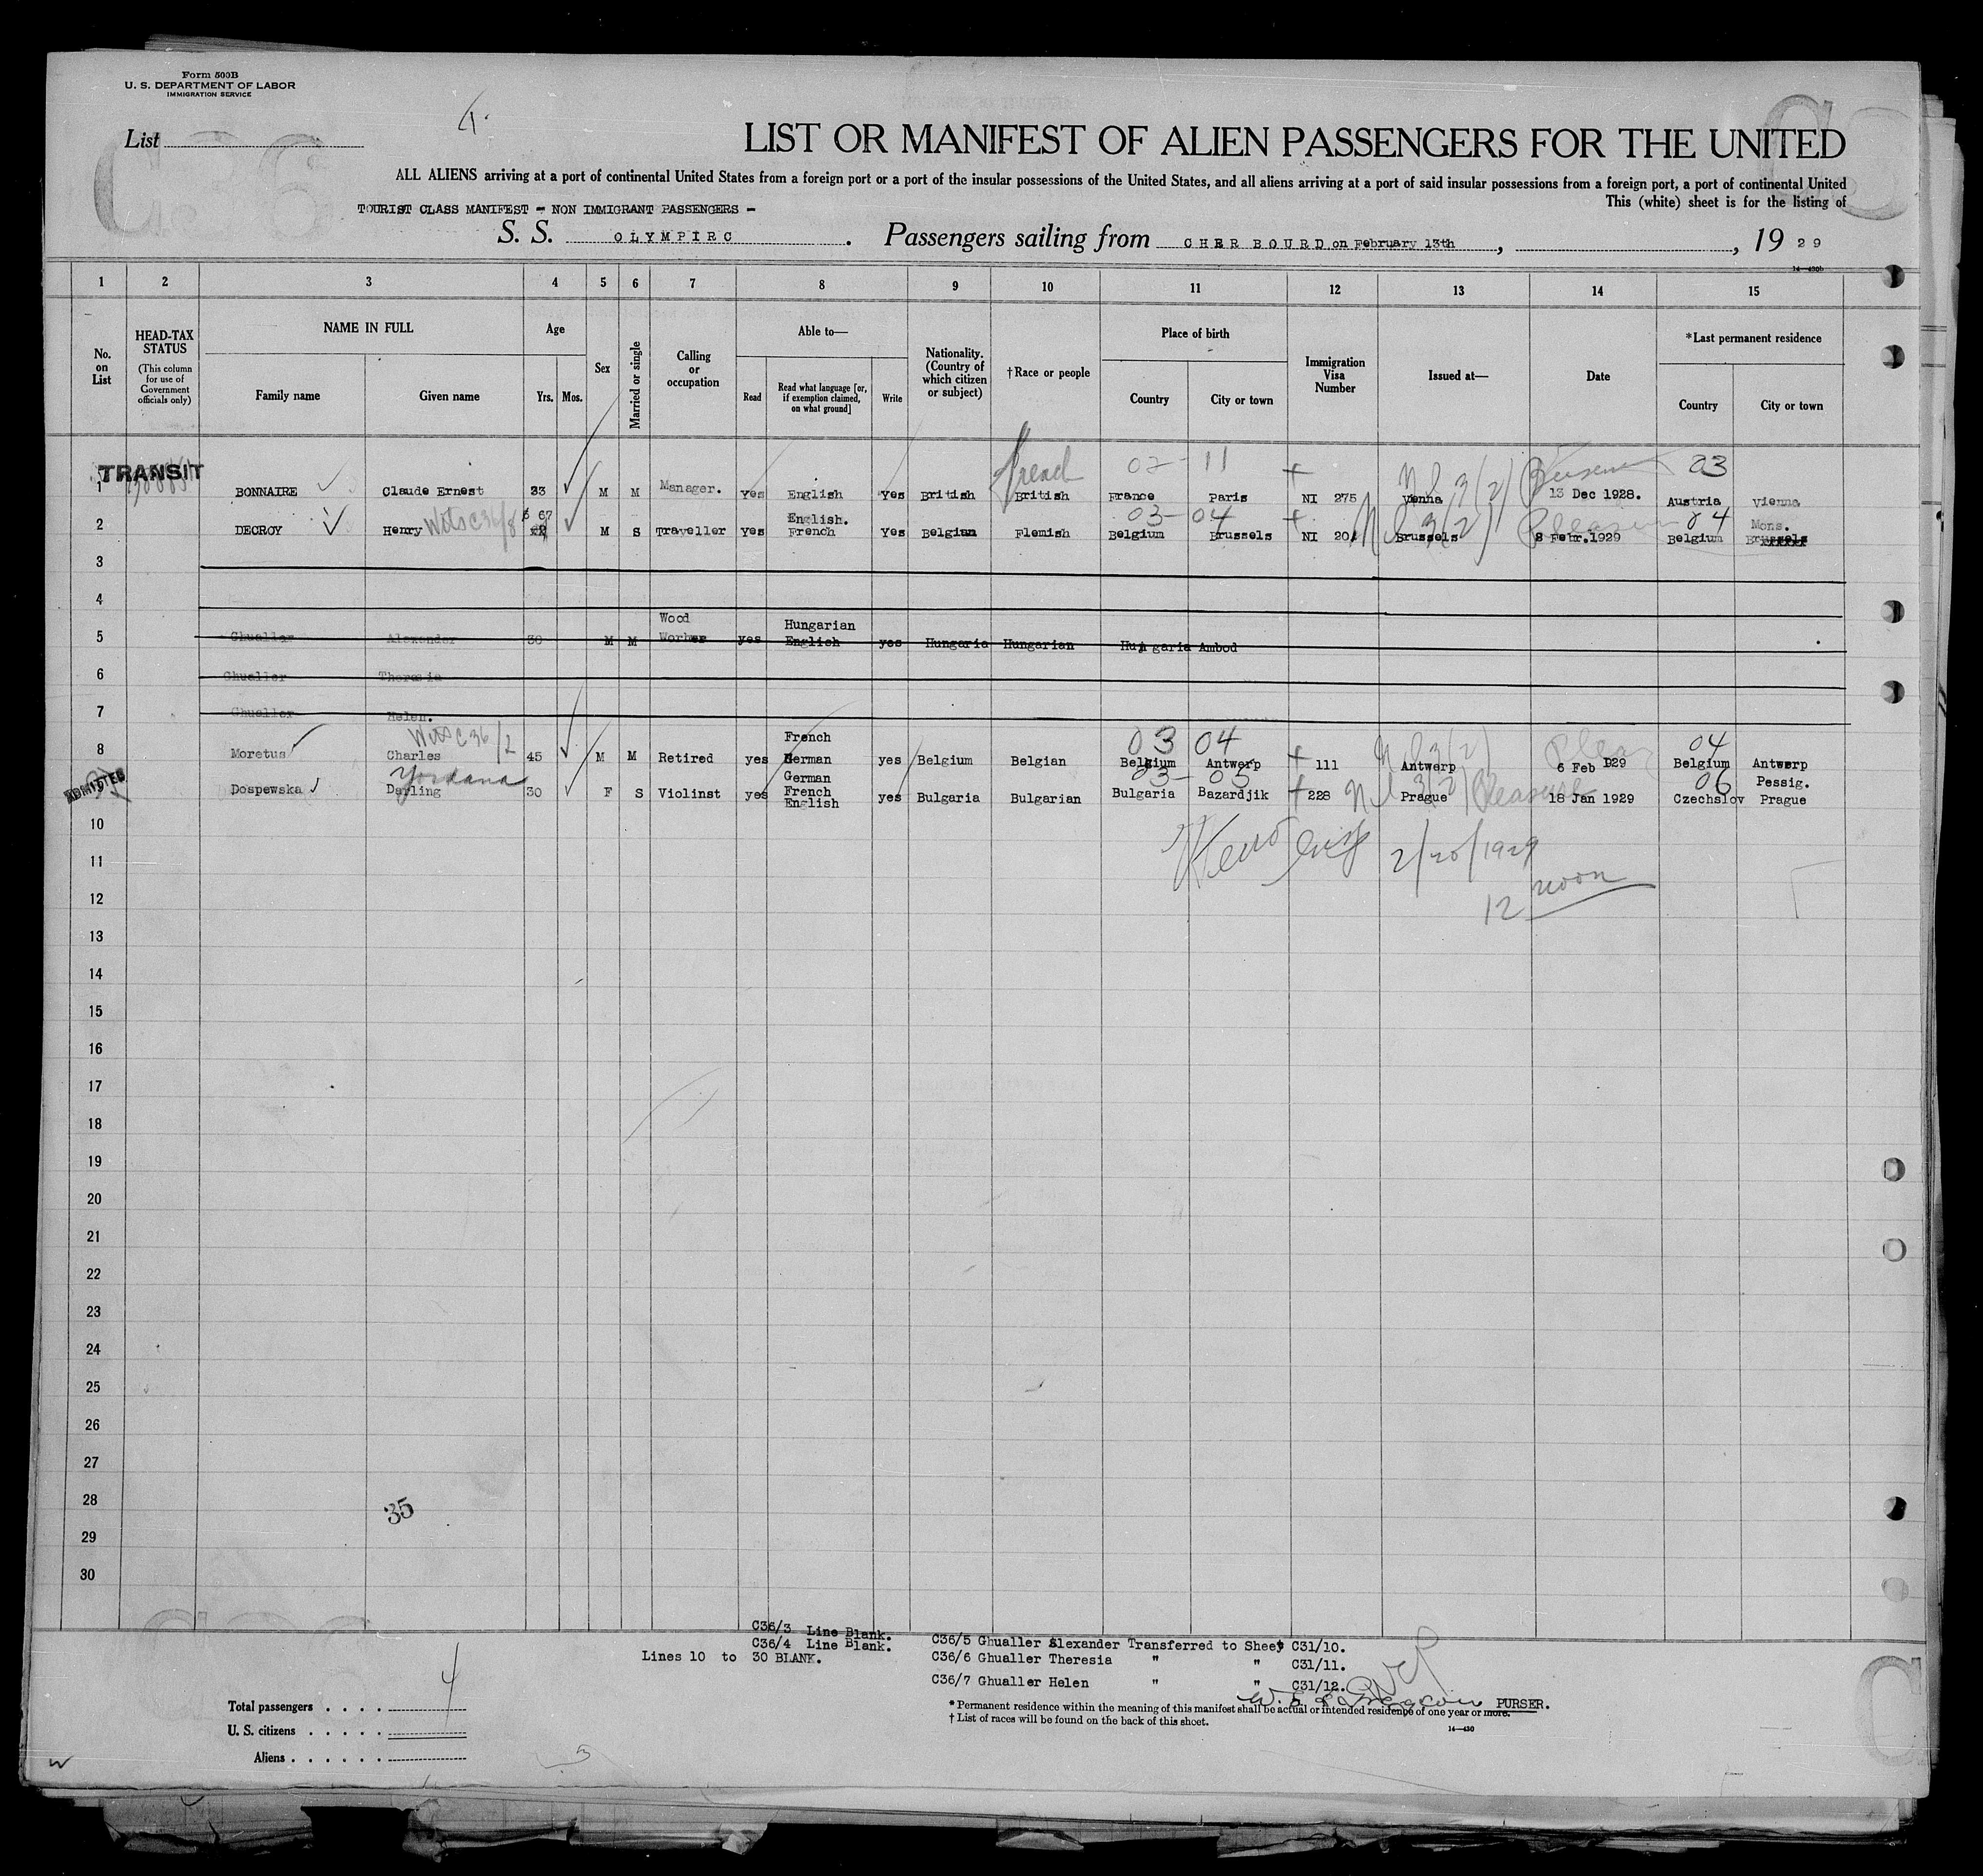 Form 500B
U. S. DEPARTMENT OF LABOR
IMMIGRATION SERVICE
List
4
LIST OR MANIFEST OF ALIEN PASSENGERS FOR THE UNITED
ALL ALIENS arriving at a port of continental United States from a foreign port or a port of the insular possessions of the United States, and all aliens arriving at a port of said insular possessions from a foreign port, a port of continental United
This (white) sheet is for the listing of
TOURIST CLASS MANIFEST - NON IMMIGRANT PASSENGERS -
S. S. OLYMPIRC. Passengers sailing from CHERBOURD on February 13th, , 19 29
14-430b
1 2 3 4 5 6 7 8 9 10 11 12 13 14 15
No. on List
HEAD-TAX STATUS
(This column for use of Government officials only)
NAME IN FULL
Family name Given name
Age
Yrs. Mos.
Sex
Married or single
Calling or occupation
Able to—
Read
Read what language [or, if exemption claimed, on what ground]
Write
Nationality. (Country of which citizen or subject)
†Race or people
Place of birth
Country City or town
Immigration Visa Number
Issued at—
Date
*Last permanent residence
Country City or town
TRANSIT
French 02-11 N I 3(2) 03
1 BONNAIRE Claude Ernest 33 M M Manager. Yes English Yes British British France Paris NI 275 Vienna 13 Dec 1928. Austria Vienna
67 English. 03-04 N I 3(2) 04 Mons.
2 DECROY Henry M S Traveller Yes French Yes Belgian Flemish Belgium Brussels NI 201 Brussels 8 Febr.1929 Belgium Brussels
3
4
Wood Hungarian
5 Ghualler Alexander 30 M M Worker yes English yes Hungaria Hungarian Hungaria Ambod
6 Ghualler Theresia
7 Ghualler Helen.
C36/2 French 03 04 N I 3(2) 04
8 Moretus Charles 45 M M Retired yes German yes Belgium Belgian Belgium Antwerp 111 Antwerp 6 Feb 1929 Belgium Antwerp
ADMITTED Yordana German 03-05 N I 3(2) Pleasure 06 Pessig.
Dospewska Darling 30 F S Violinst yes French yes Bulgaria Bulgarian Bulgaria Bazardjik 228 Prague 18 Jan 1929 Czechslov Prague
English
10
11 2/20/1929
12 12 noon
13
14
15
16
17
18
19
20
21
22
23
24
25
26
27
28 35
29
30
C36/3 Line Blank.
C36/4 Line Blank.
Lines 10 to 30 BLANK.
C36/5 Ghualler Alexander Transferred to Sheet C31/10.
C36/6 Ghualler Theresia " " C31/11.
C36/7 Ghualler Helen " " C31/12.
PURSER.
* Permanent residence within the meaning of this manifest shall be actual or intended residence of one year or more.
† List of races will be found on the back of this sheet.
14-430
Total passengers . . . . 4
U. S. citizens . . . . .
Aliens . . . . . .